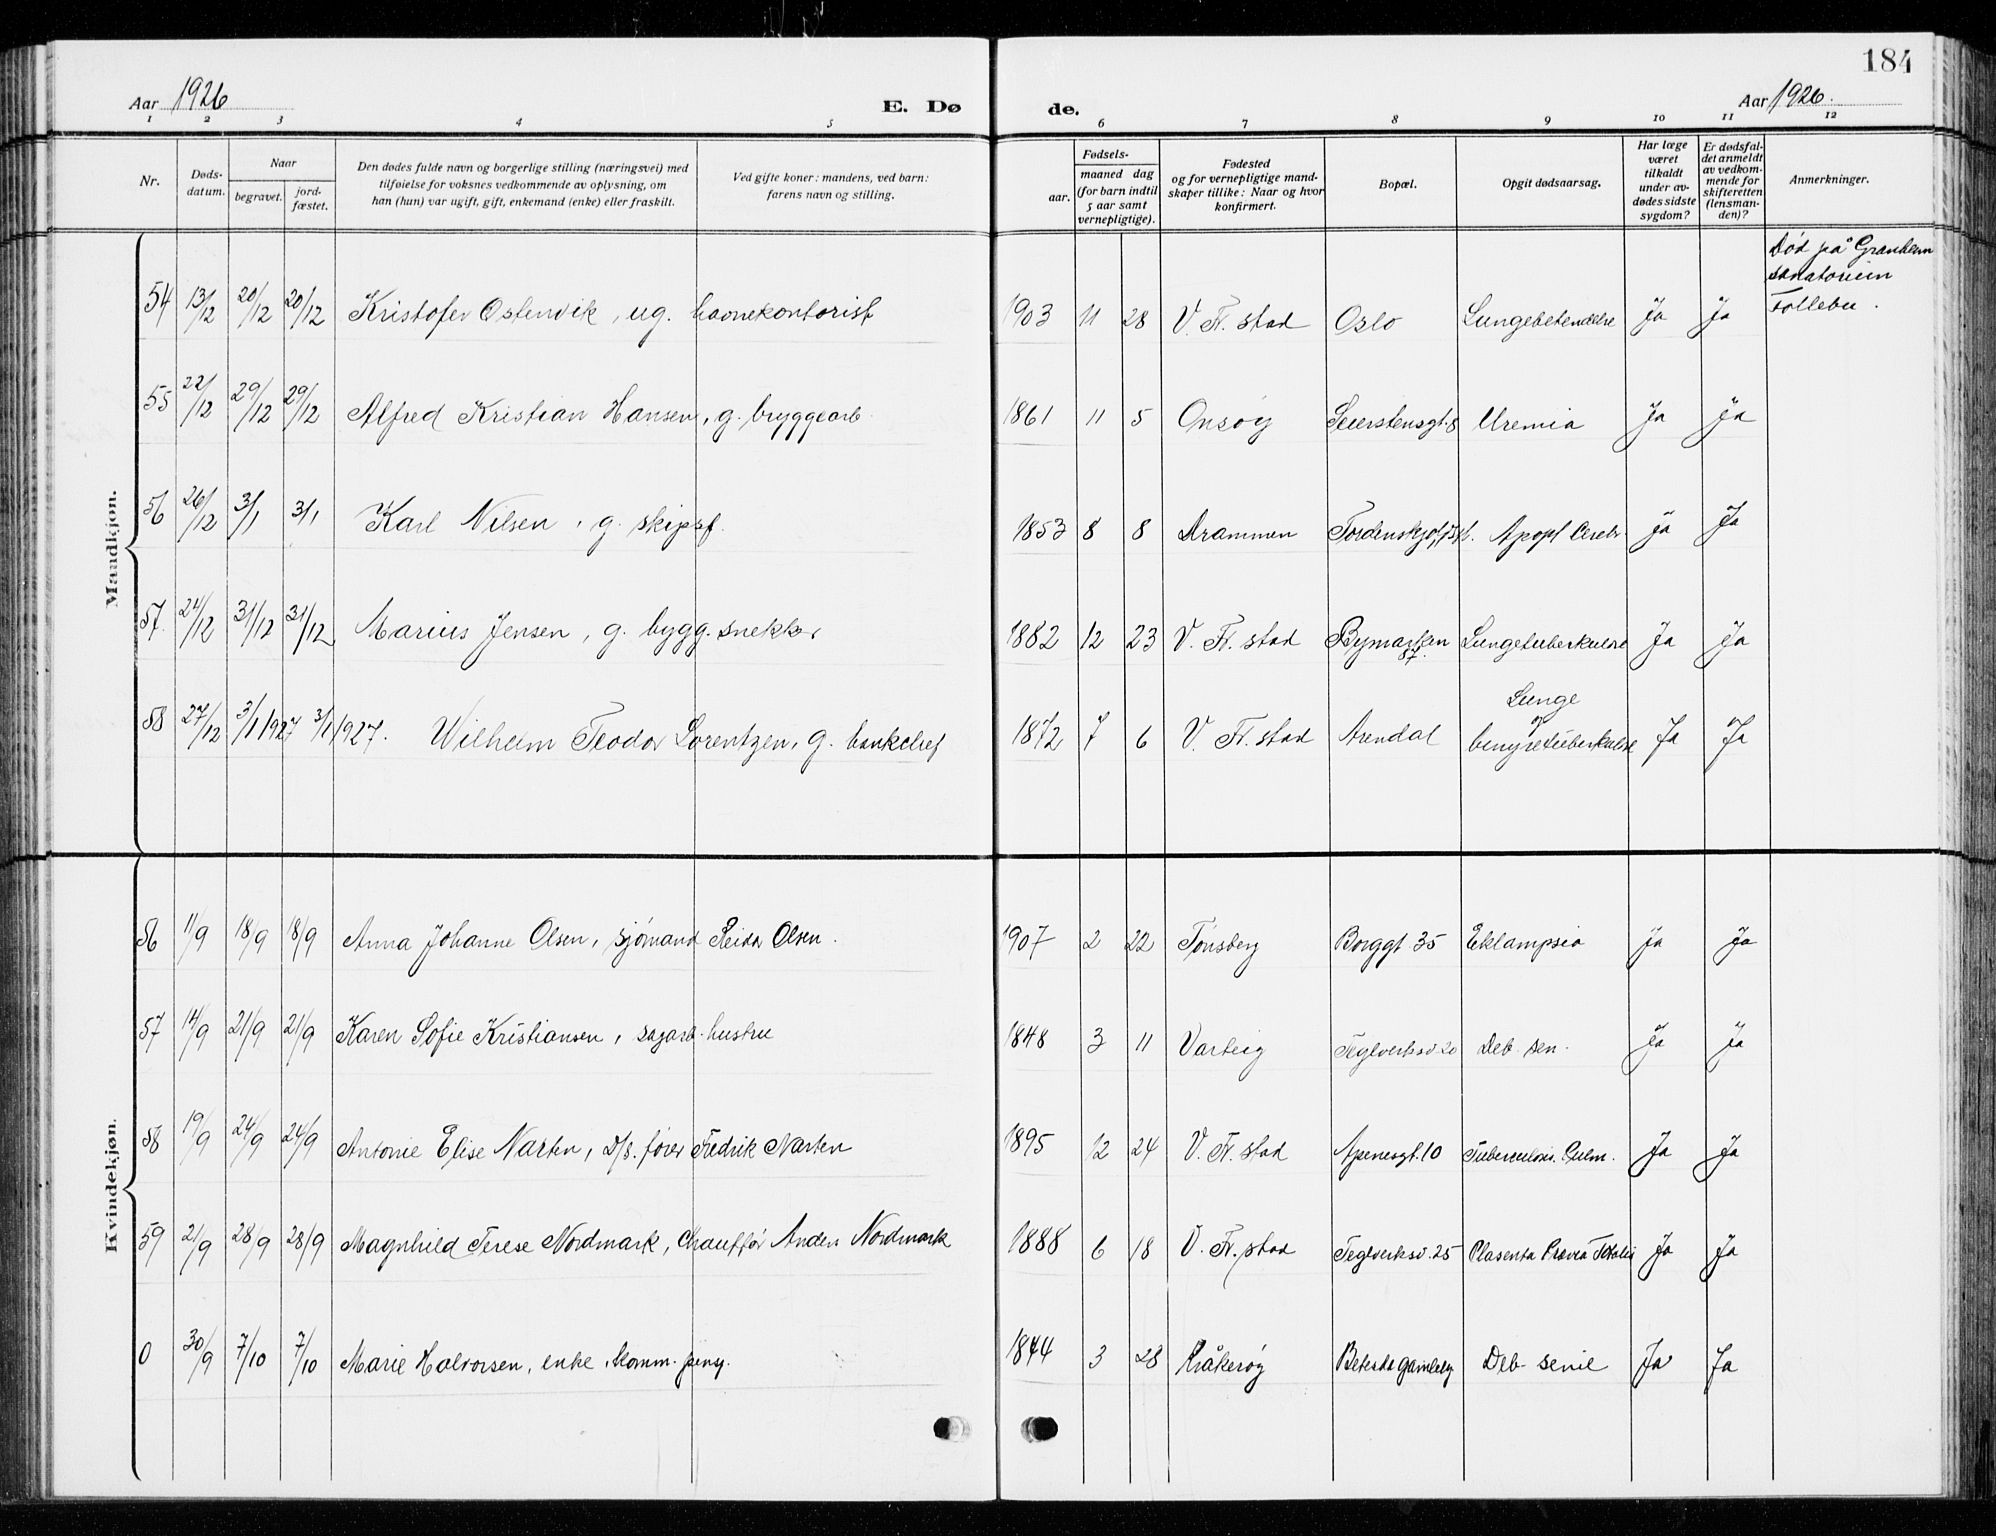 184
Aar 1926 E. Døde. Aar 1926.
1 2 3 4 5 6 7 8 9 10 11 12
Nr.
Dødsdatum.
Naar
begravet.
jordfæstet.
Den dødes fulde navn og borgerlige stilling (næringsvei) med
tilføielse for voksnes vedkommende av oplysning, om
han (hun) var ugift, gift, enkemand (enke) eller fraskilt.
Ved gifte koner: mandens, ved barn:
farens navn og stilling.
Fødsels-
aar.
maaned dag
(for barn indtil
5 aar samt
vernepligtige).
Fødested
og for vernepligtige mand-
skaper tillike: Naar og hvor
konfirmert.
Bopæl.
Opgit dødsaarsag.
Har læge
været
tilkaldt
under av-
dødes sidste
sygdom?
Er dødsfal-
det anmeldt
av vedkom-
mende for
skifteretten
(lensman-
den)?
Anmerkninger.
Mandkjøn.
54 13/12 20/12 20/12 Kristofer Ostenvik, ug. havnekontorist 1903 11 28 V. Fr. stad Oslo Lungebetendelse Ja Ja Død på Granheim
sanatorium
Follebu.
55 22/12 29/12 29/12 Alfred Kristian Hansen, g. bryggearb. 1861 11 5 Onsøy Seierstensgt. 8 Uremia Ja Ja
56 26/12 3/1 3/1 Karl Nilsen, g. skipsf. 1853 8 8 Drammen Apopl Cerebr. Ja Ja
57. 24/12 31/12 31/12 Marius Jensen, g. bygg. snekker 1882 12 23 V. Fr. stad Bymarken 87. Lungetuberkulose Ja Ja
58 27/12 3/1 1927 3/1 1927. Wilhelm Teodor Lorentzen, g. bankchef 1872 7 6 V. Fr. stad Arendal Lunge
og
Ja Ja
Kvindekjøn.
56 11/9 18/9 18/9 Anna Johanne Olsen, sjömand Reidar Olsen. 1907 2 22 Tønsberg Borggt 35 Eklampsia Ja Ja
57 14/9 21/9 21/9 Karen Sofie Kristiansen, sagarb. hustru 1848 3 11 Varteig Teglverksv 20 Deb. sen. Ja Ja
58 19/9 24/9 24/9 Antonie Elise Narten, D/s. fører Fredrik Narten 1895 12 24 V. Fr. stad Apenesgt. 10 Tuberculosis. Pulm. Ja Ja
59 21/9 28/9 28/9 Magnhild Terese Nordmark, Chauffør Anders Nordmark 1888 6 18 V. Fr. stad Teglverksv. 25 Plasenta Previa Totalis Ja Ja
0 30/9 7/10 7/10 Marie Halvorsen, enke, komm. pens. 1844 3 28 Kråkerøy Betesda gamleh Deb. senil Ja Ja